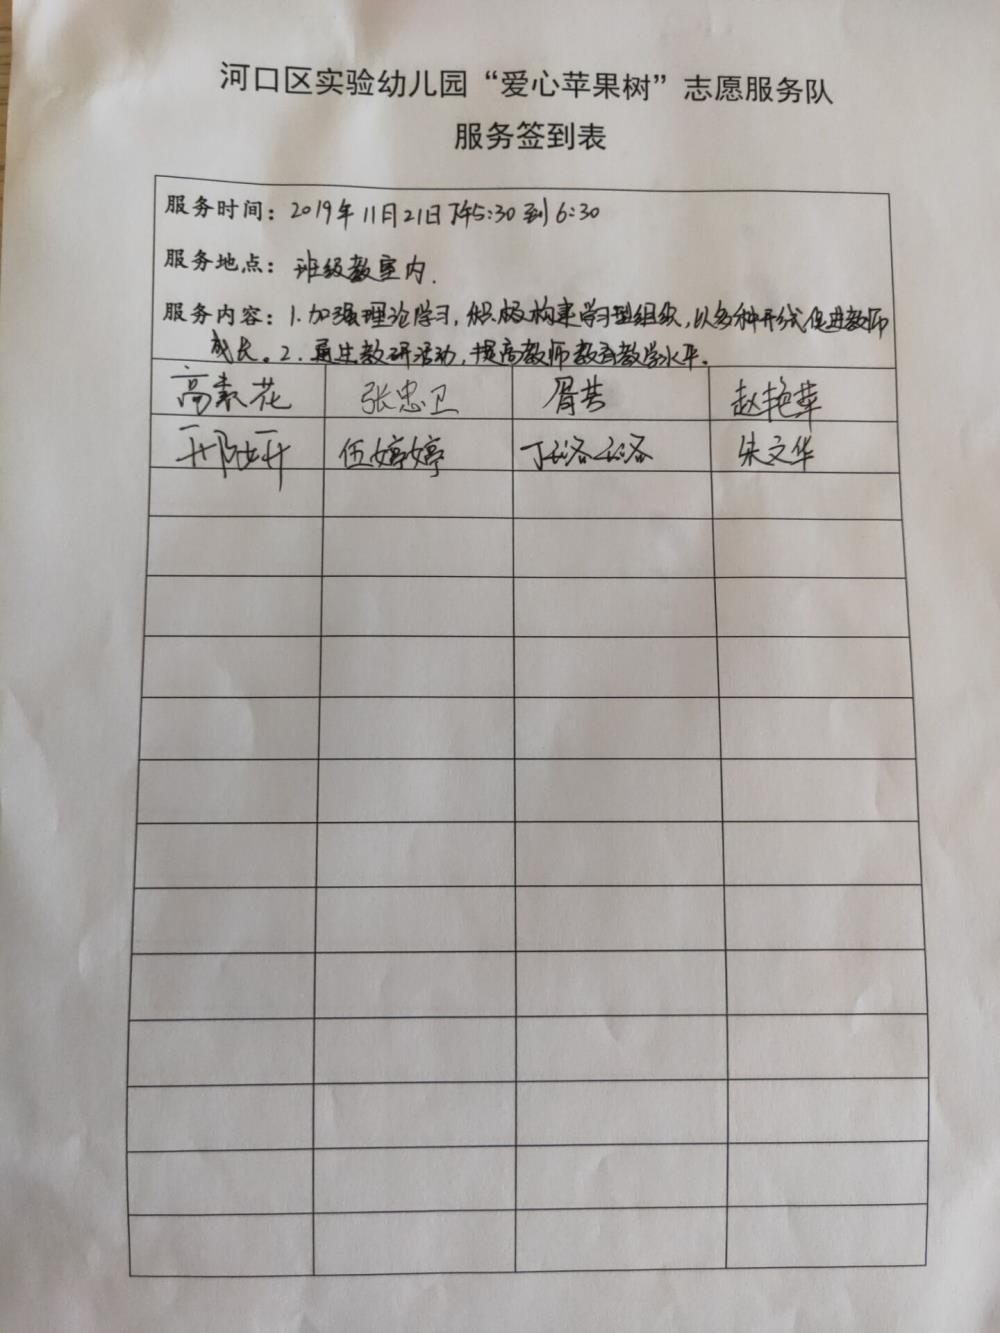 河口区实验幼儿园“爱心苹果树”志愿服务队
服务签到表
服务时间：2019年11月21日下午5:30到6:30
服务地点：班级教室内.
服务内容：1.加强理论学习，积极构建学习型组织，以多种形式促进教师
成长。2.通过教研活动，提高教师教育教学水平。
高素花 张忠卫 胥芸 赵艳苹
伍婷婷 丁 朱文华